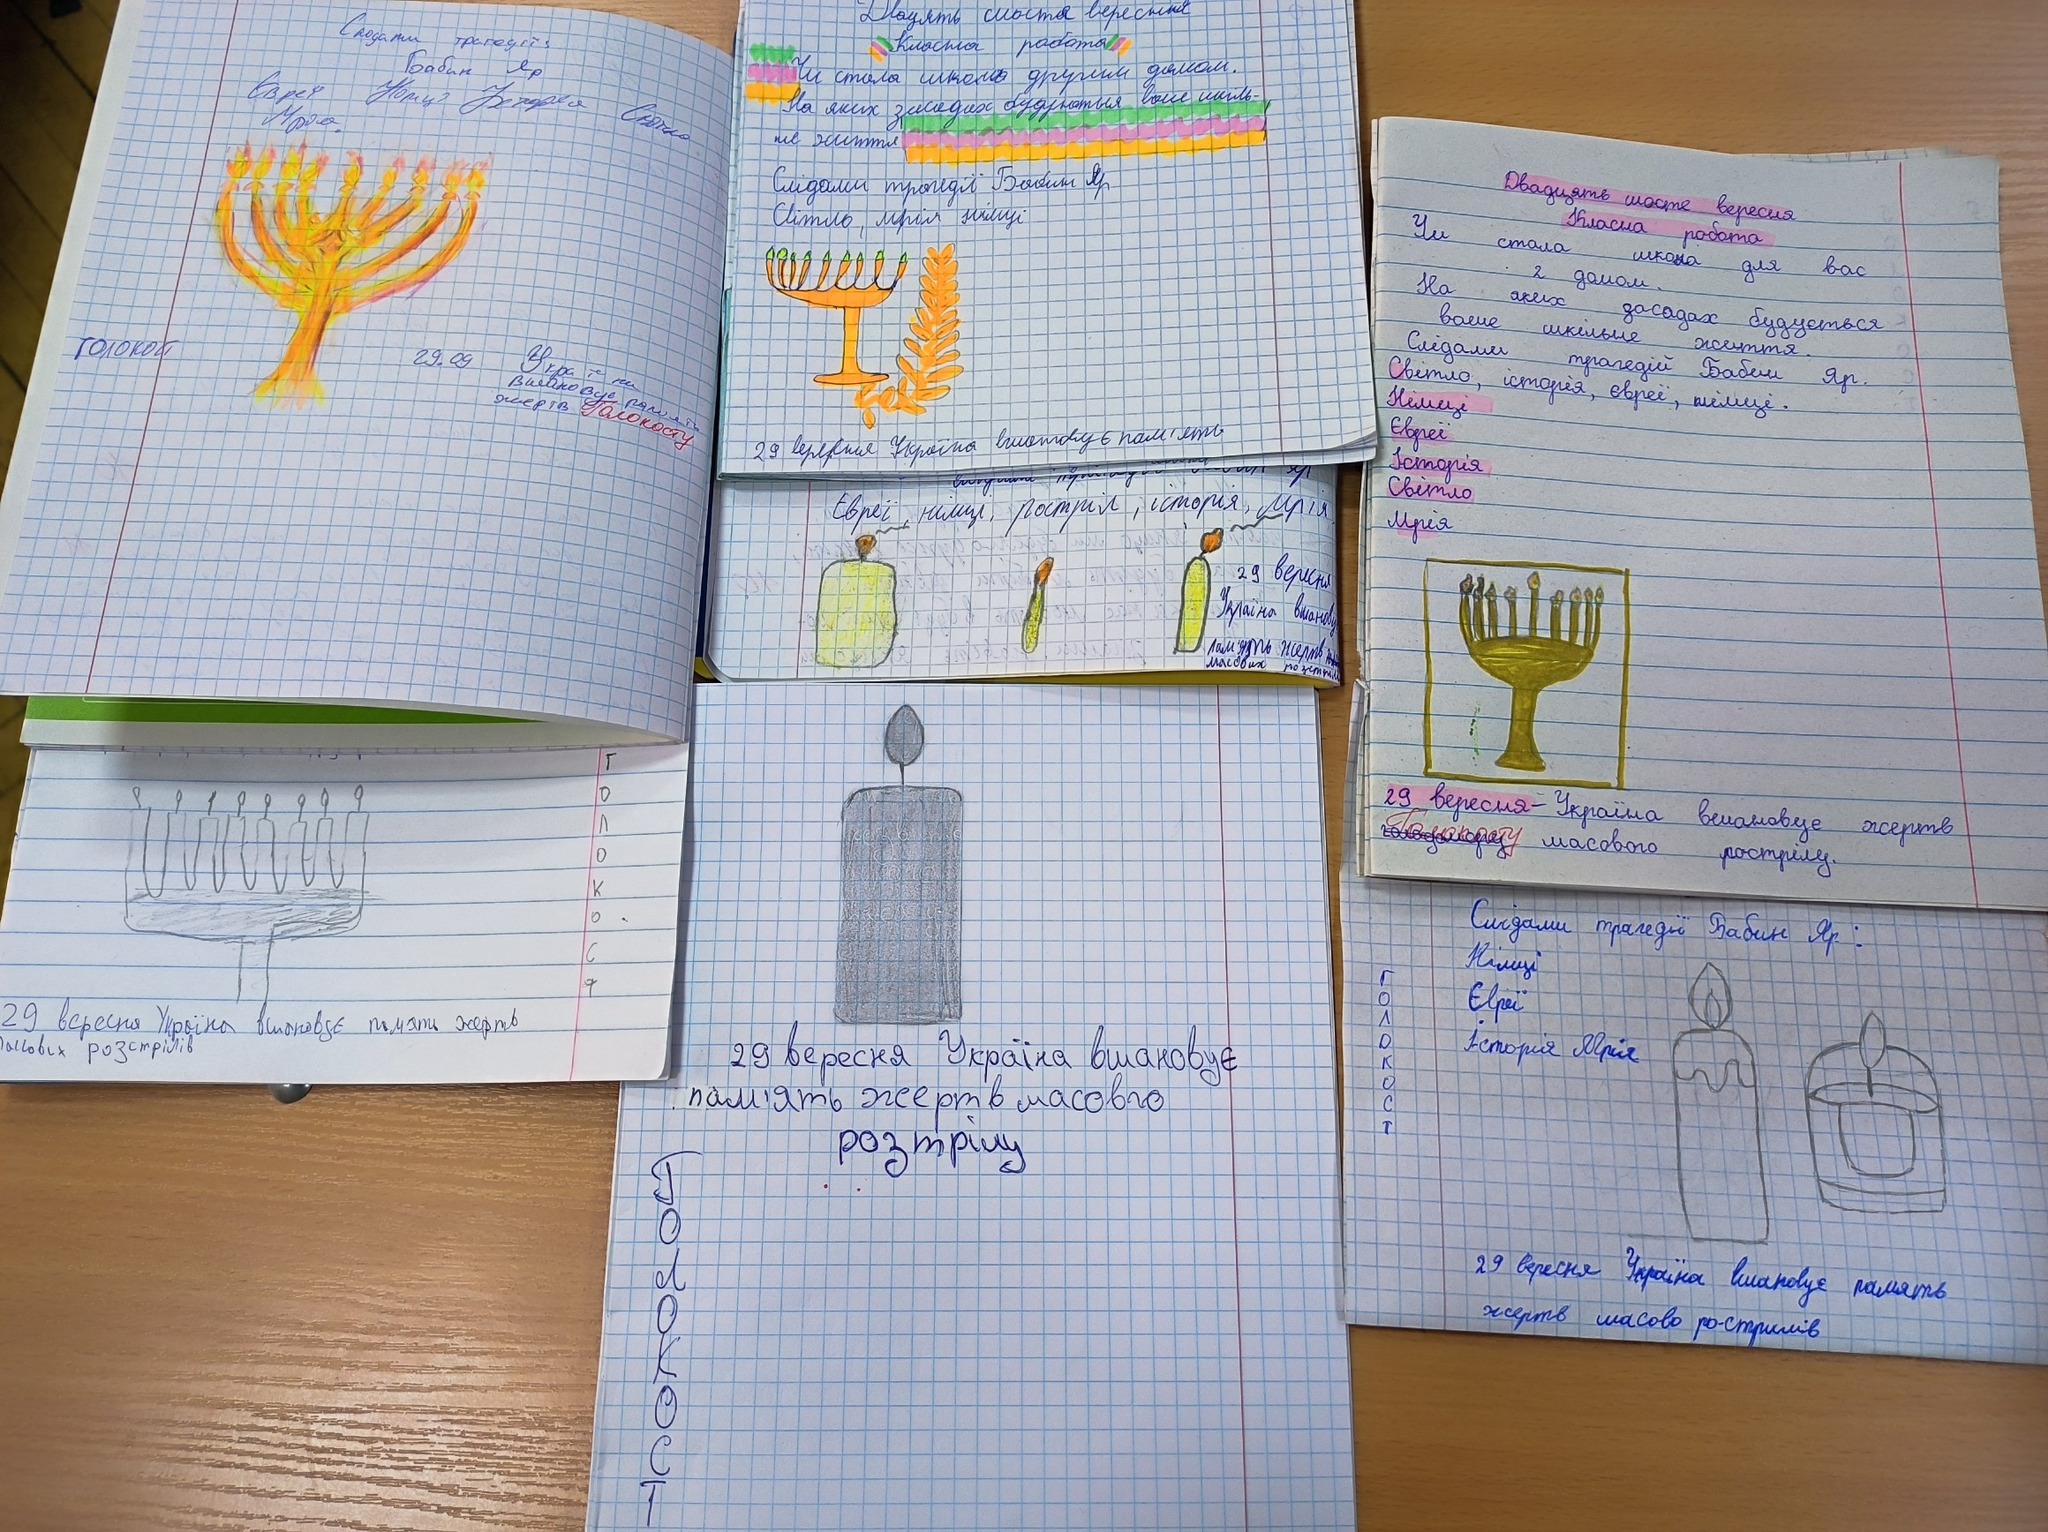 Слідами трагедії:
Бабин Яр
Євреї Німці Історія Світло
Мрія.
ГОЛОКОСТ
29.09 Україна
вшановує память
жертв Голокосту
Двацять шоста вересння
Класна работа
Чи стала школа другим домом.
На яких засадах будуються ваше шкіль-
не життя
Слідами трагедії Бабин Яр
Світло, мрія німці
29 вересня Україна вшановує пам'ять
Яр
Євреї, німці, ростріл, історія, Мрія.
29 вересня
Україна вшанову
пам'ять жертв
масових
Двадцять шосте вересня
Класна робота
Чи стала школа для вас
2 домом.
На яких засадах будується
ваше шкільне життя.
Слідами трагедій Бабин Яр.
Світло, історія, євреї, німці.
Німці
Євреї
Історія
Світло
Мрія
29 вересня - Україна вшановує жертв
Голокосту масового рострілу.
Г
О
Л
О
К
О
С
Т
29 вересня Україна вшановує память жертв
масових розстрілів
29 вересня Україна вшановує
пам'ять жертв масовго
розтрілу
ГОЛОКОСТ
Слідами трагедії Бабин Яр:
Німці
Євреї
Історія Мрія
Г
О
Л
О
К
О
С
Т
29 вересня Україна вшановує память
жертв масово ро-стрилів